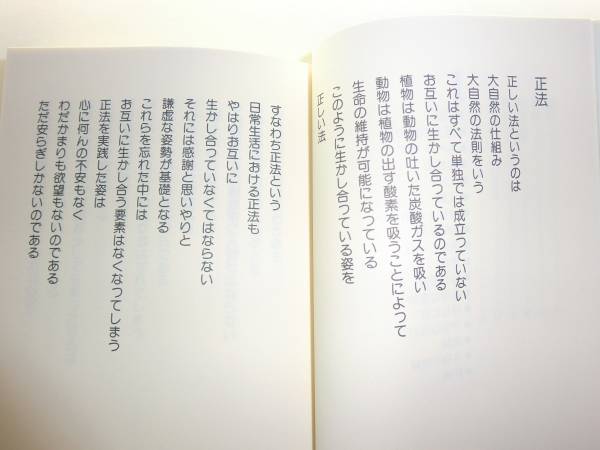 正法
正しい法というのは
大自然の仕組み
大自然の法則をいう
これはすべて単独では成立つていない
お互いに生かし合つているのである
植物は動物の吐いた炭酸ガスを吸い
動物は植物の出す酸素を吸うことによつて
生命の維持が可能になつている
このように生かし合つている姿を
正しい法
すなわち正法という
日常生活における正法も
やはりお互いに
生かし合つていなくてはならない
それには感謝と思いやりと
謙虚な姿勢が基礎となる
これらを忘れた中には
お互いに生かし合う要素はなくなつてしまう
正法を実践した姿は
心に何んの不安もなく
わだかまりも欲望もないのである
ただ安らぎしかないのである